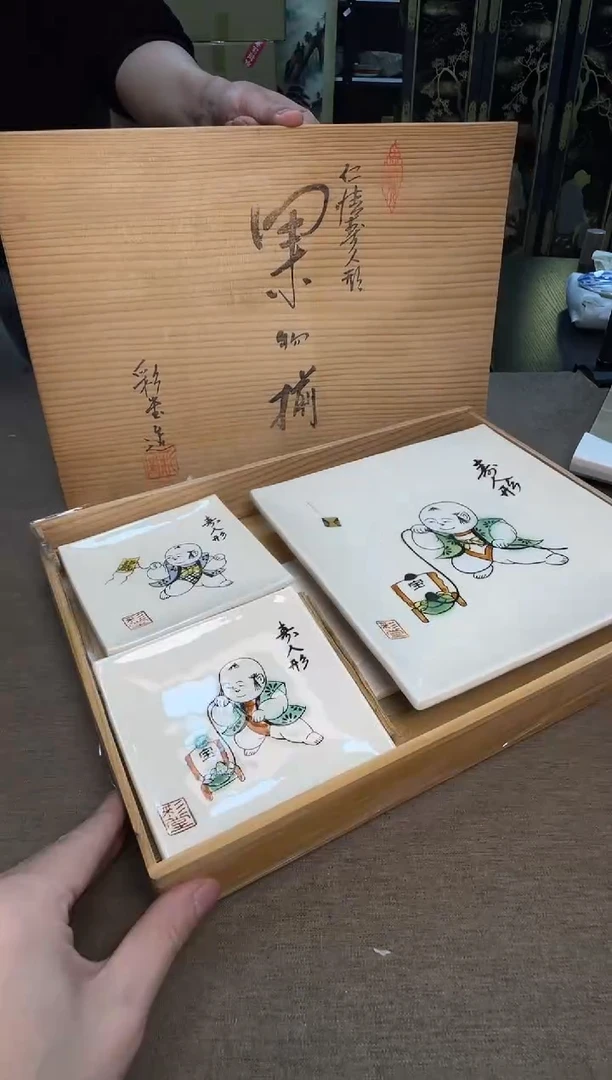 仁清寿人形
果物揃
彩堂造
寿人形
寿人形
宝
寿人形
宝